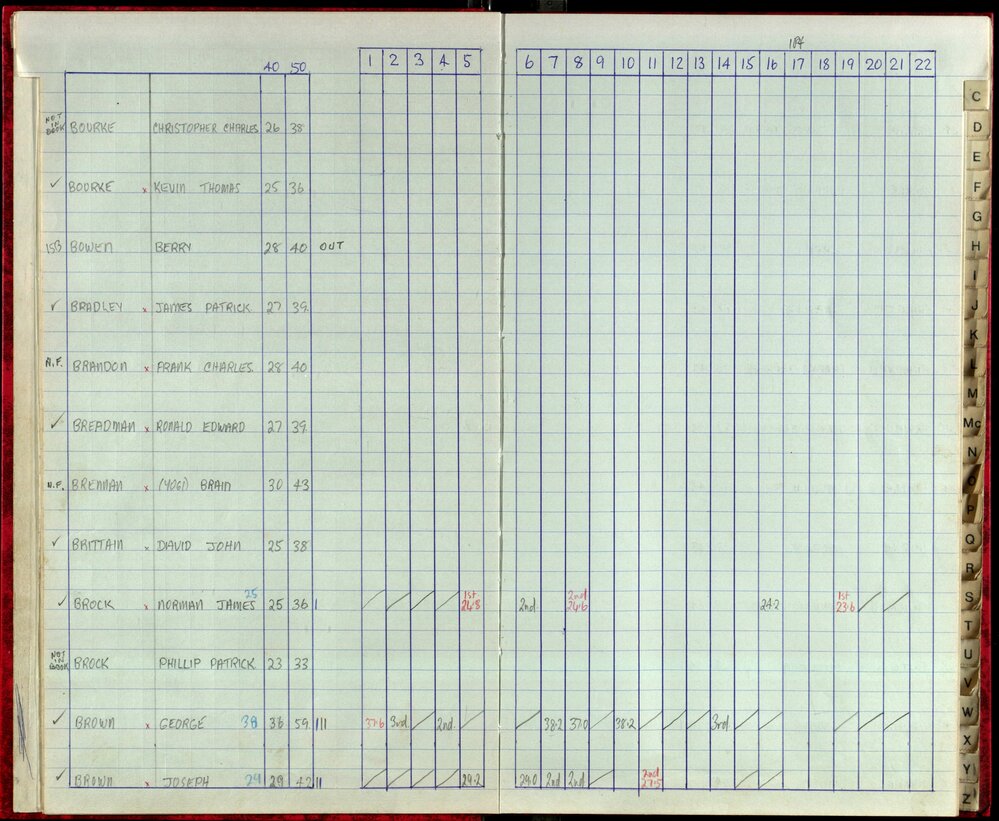 184
40 50 1 2 3 4 5 6 7 8 9 10 11 12 13 14 15 16 17 18 19 20 21 22
NOT IN BOOK BOURKE CHRISTOPHER CHARLES 26 38
✓ BOURKE x KEVIN THOMAS 25 36
15B BOWEN BERRY 28 40 OUT
✓ BRADLEY x JAMES PATRICK 27 39
N.F. BRANDON x FRANK CHARLES 28 40
✓ BREADMAN x RONALD EDWARD 27 39
N.F. BRENNAN x (YOGI) BRAIN 30 43
✓ BRITTAIN x DAVID JOHN 25 38
✓ BROCK x NORMAN JAMES 25 25 36 I / / / / 1st 24.8 2nd 2nd 24.6 24.2 1st 23.6 / /
NOT IN BOOK BROCK PHILLIP PATRICK 23 33
✓ BROWN x GEORGE 38 38 59 III 37.6 3rd / 2nd / / 38.2 37.0 / 38.2 / / / 3rd / / / / /
✓ BROWN x JOSEPH 29 29 42 II / / / / 29.2 29.0 2nd 2nd / 2nd 27.5 / /
C
D
E
F
G
H
I
J
K
L
M
Mc
N
O
P
Q
R
S
T
U
V
W
X
Y
Z